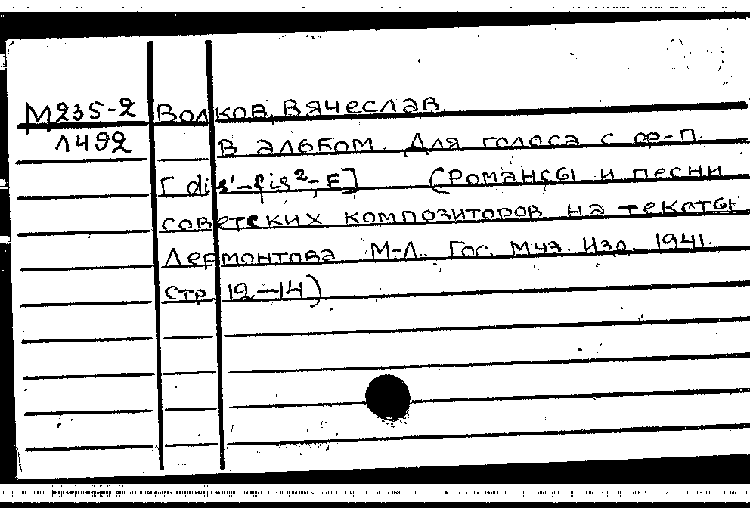 М235-2 Волков, Вячеслав
Л492 В альбом. Для голоса с ф-п.
[dis'-fis²; E] (Романсы и песни
советских композиторов на тексты
Лермонтова М-Л. Гос. Муз. Изд. 1941.
стр 12-14)